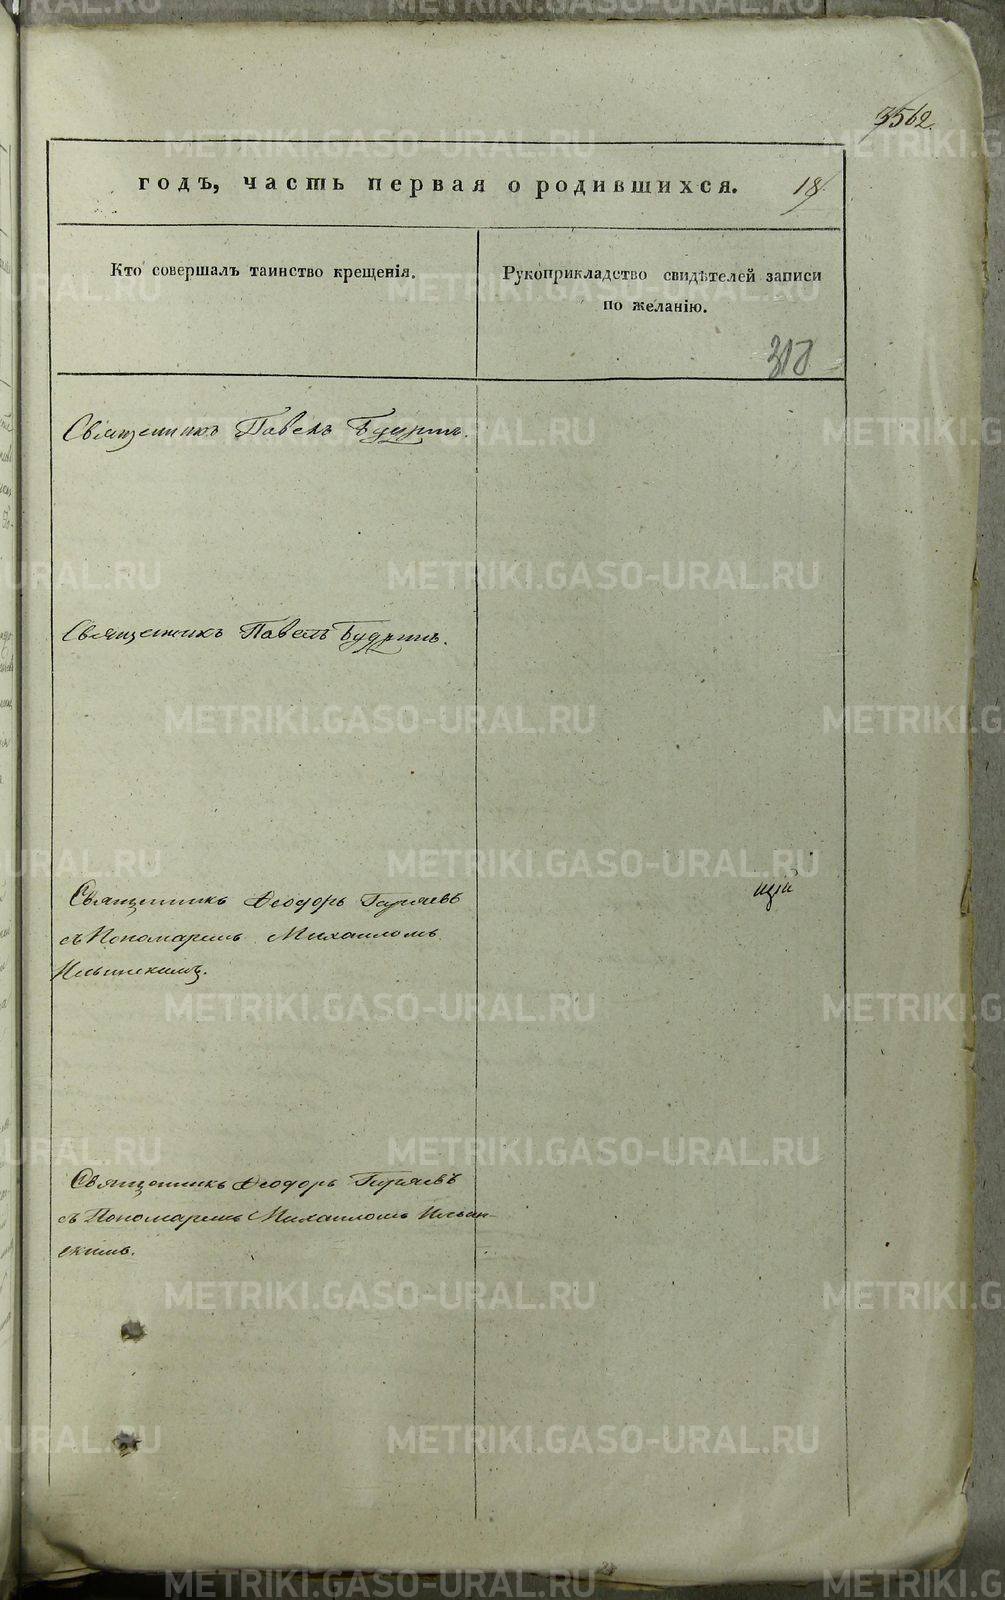 3562.
годъ, часть первая о родившихся. 18
Кто совершалъ таинство крещенія.
Рукоприкладство свидѣтелей записи
по желанію.
318
Священникъ Павелъ Будринъ.
Священникъ Павелъ Будринъ.
Священникъ Ѳеодоръ Гиряевъ
съ Пономаремъ Михаиломъ
Ильинскимъ.
щій
Священникъ Ѳеодоръ Гиряевъ
съ Пономаремъ Михаиломъ Ильин-
скимъ.
METRIKI.GASO-URAL.RU